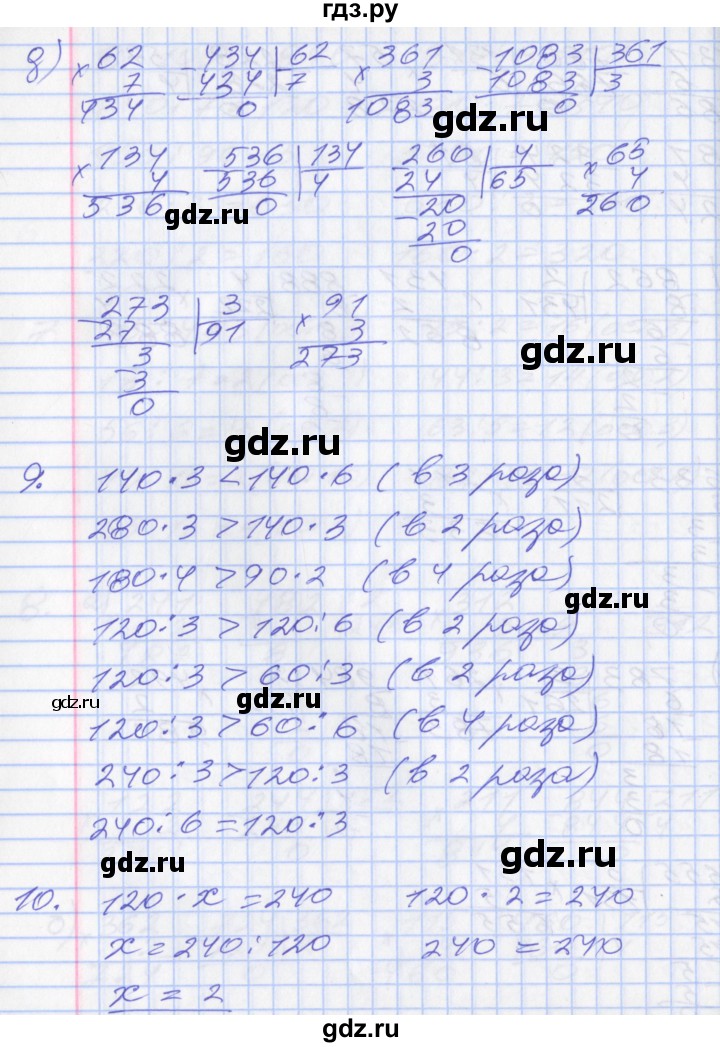 гдз.ру
д) × 62 - 434 | 62 × 361 - 1083 | 361
7 434 7 3 1083 3
434 0 1083 0
gdz.ru
× 134 - 536 | 134 - 260 | 4 × 65
4 536 4 24 65 4
536 0 - 20 260
gdz.ru
20
0
- 273 | 3 × 91
27 91 3
- 3 273
3
0
gdz.ru
gdz.ru
9. 140 · 3 < 140 · 6 (в 3 раза)
280 · 3 > 140 · 3 (в 2 раза)
180 · 4 > 90 · 2 (в 4 раза)
120 : 3 > 120 : 6 (в 2 раза)
gdz.ru
gdz.ru
120 : 3 > 60 : 3 (в 2 раза)
gdz.ru
gdz.ru
120 : 3 > 60 : 6 (в 4 раза)
240 : 3 > 120 : 3 (в 2 раза)
240 : 6 = 120 : 3
gdz.ru
gdz.ru
10. 120 · x = 240 120 · 2 = 240
x = 240 : 120 240 = 240
x = 2
gdz.ru